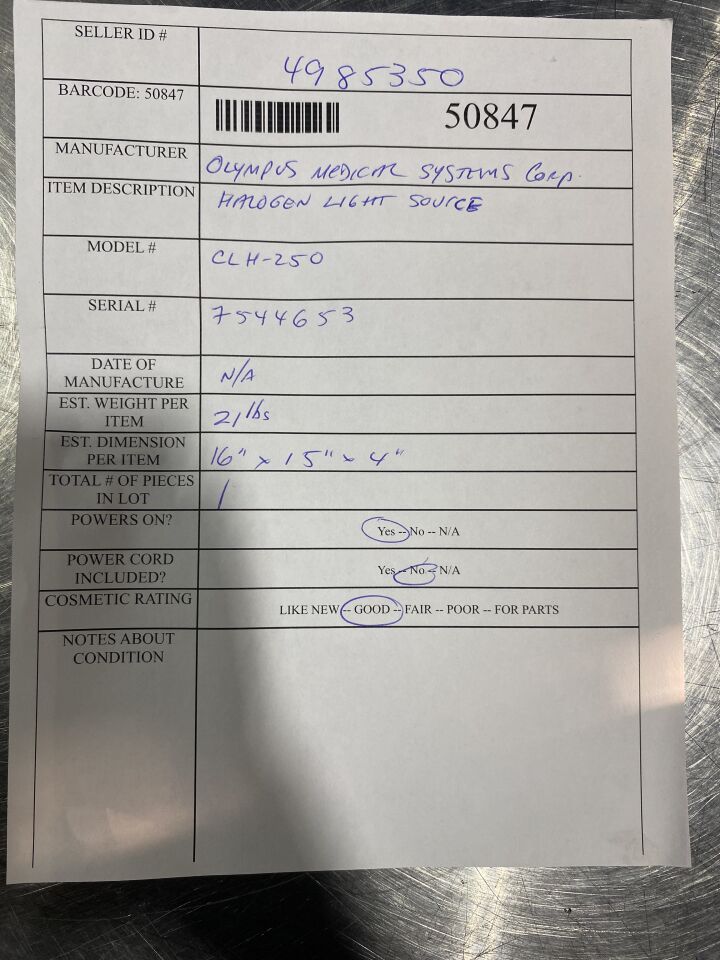 SELLER ID #
4985350
BARCODE: 50847
50847
MANUFACTURER
OLYMPUS MEDICAL SYSTEMS CORP.
ITEM DESCRIPTION
HALOGEN LIGHT SOURCE
MODEL #
CLH-250
SERIAL #
7544653
DATE OF
MANUFACTURE
N/A
EST. WEIGHT PER
ITEM
21 lbs
EST. DIMENSION
PER ITEM
16" x 15" x 4"
TOTAL # OF PIECES
IN LOT
1
POWERS ON?
Yes -- No -- N/A
POWER CORD
INCLUDED?
Yes -- No -- N/A
COSMETIC RATING
LIKE NEW -- GOOD -- FAIR -- POOR -- FOR PARTS
NOTES ABOUT
CONDITION